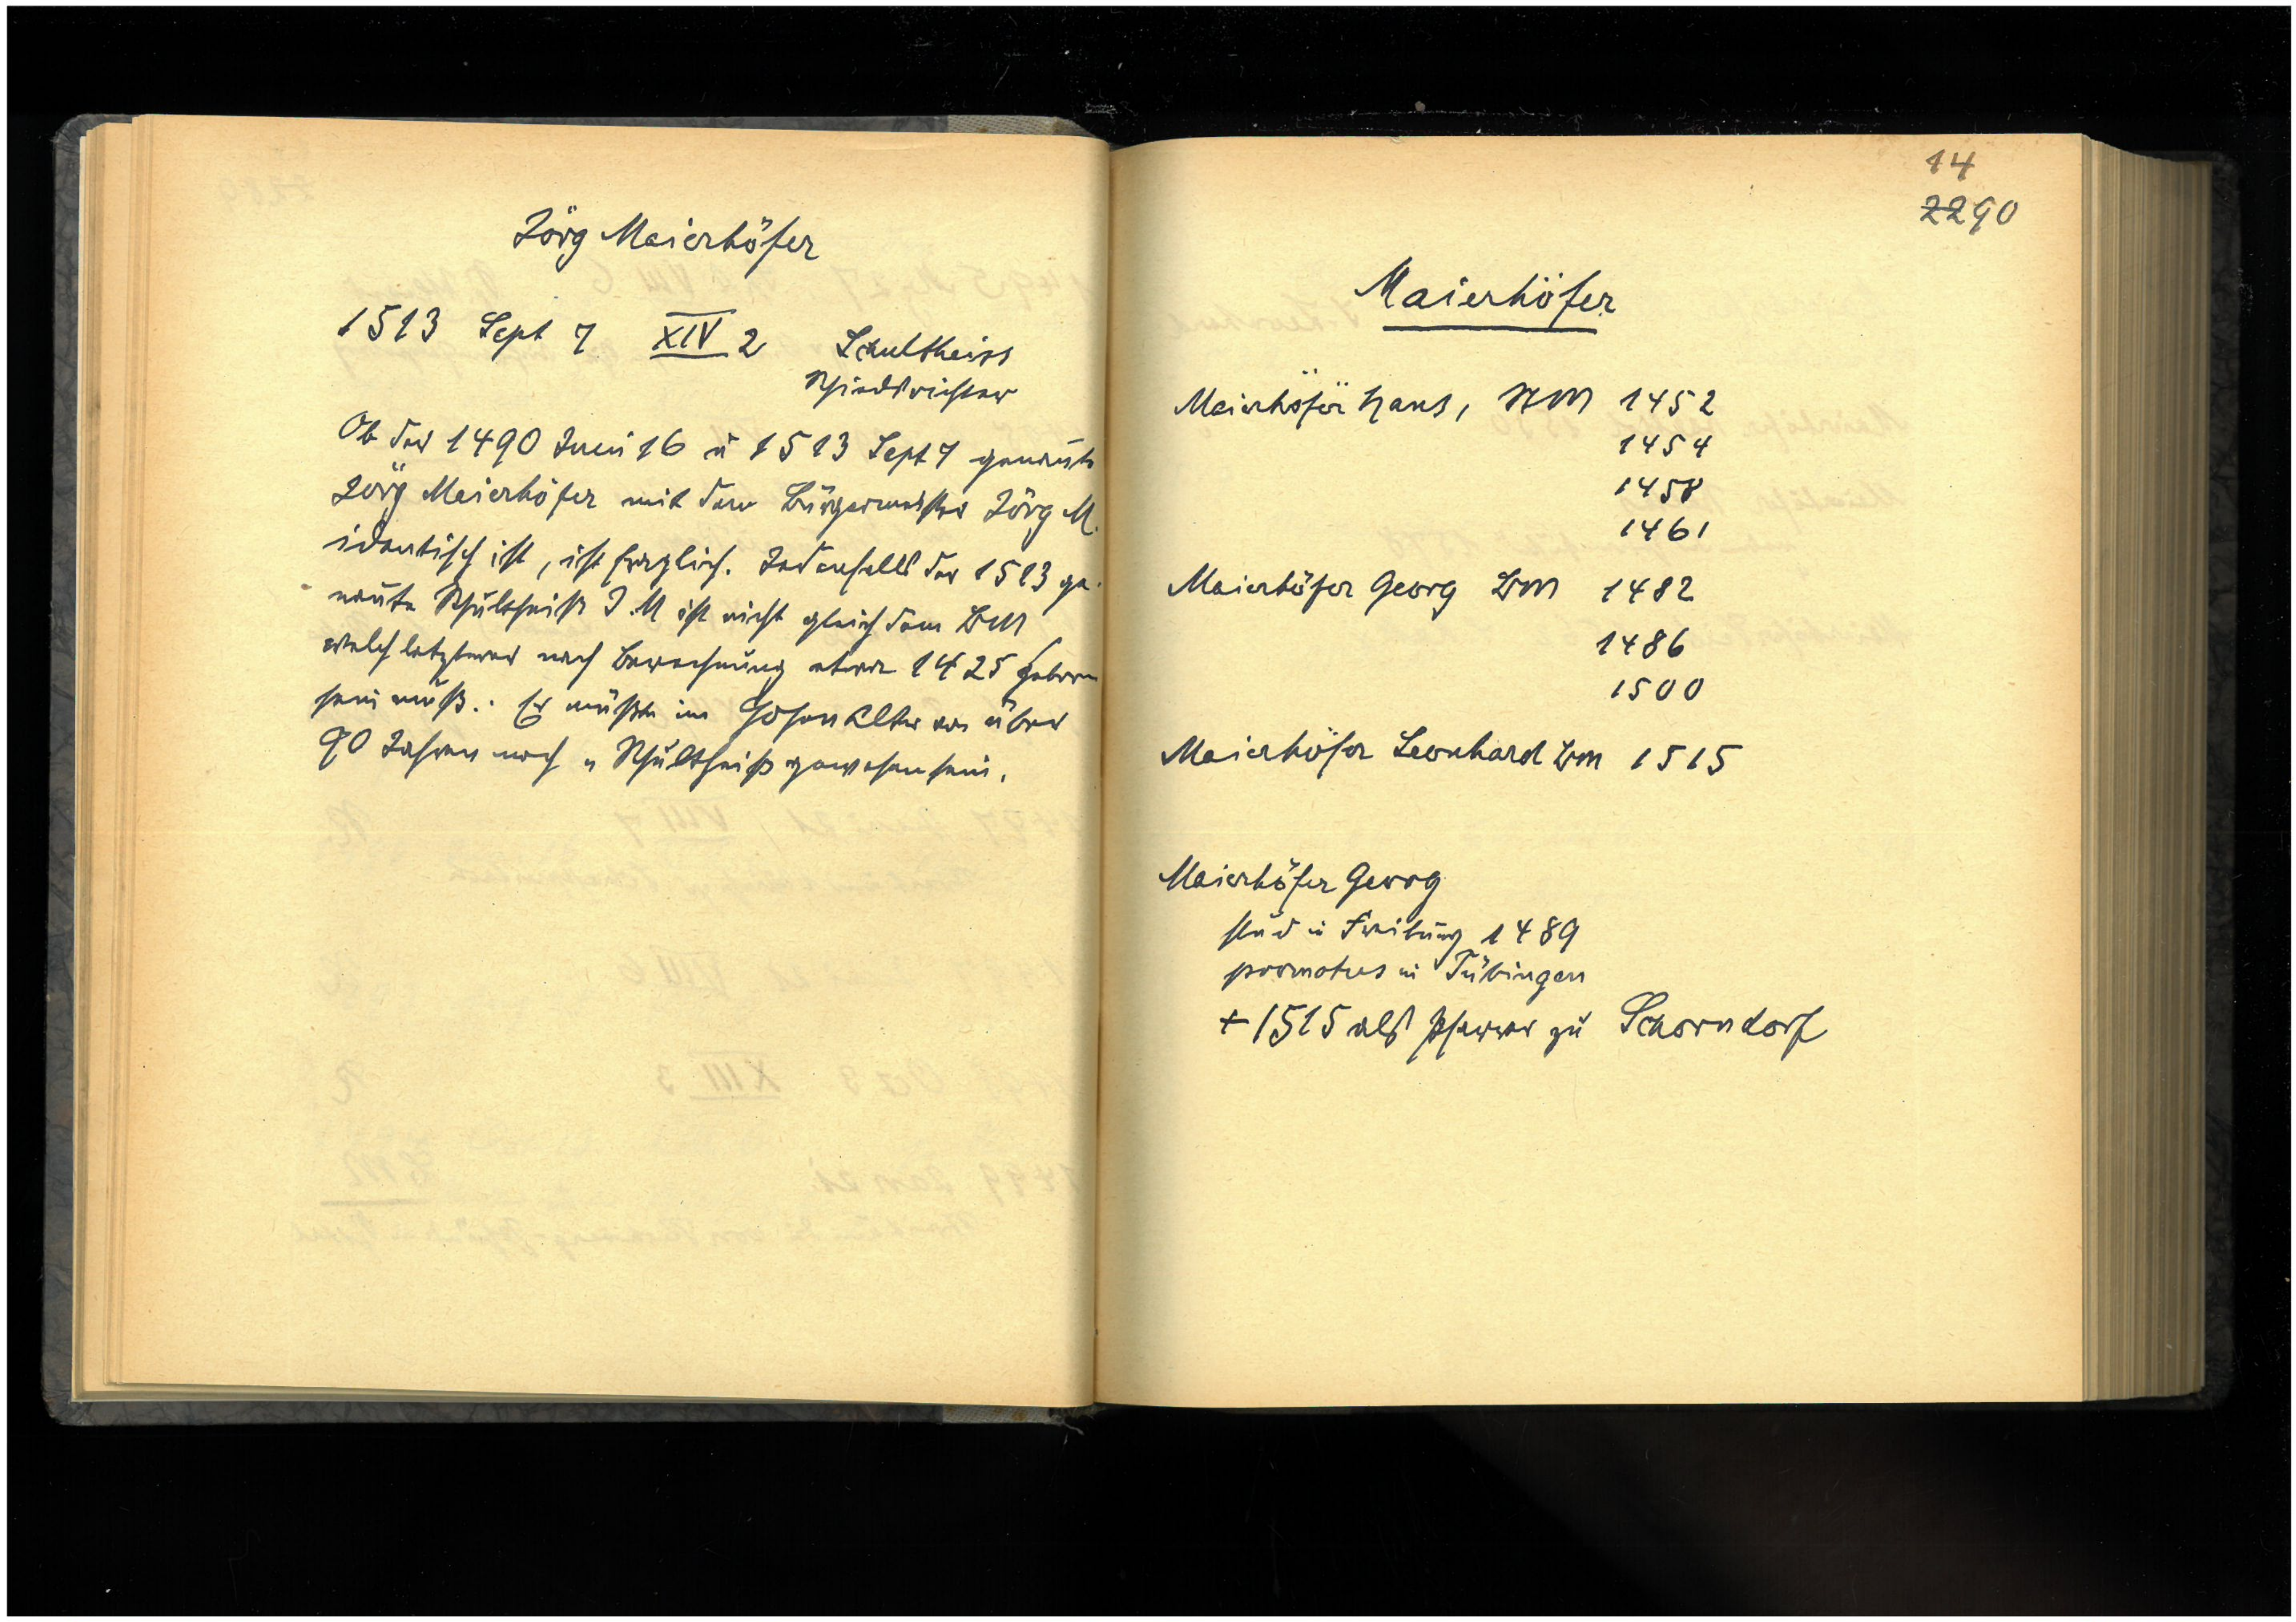 Jörg Maierhöfer
1513 Sept 7 XIV 2 Schultheiss
Schiedsrichter
Ob der 1490 Juni 16 u 1513 Sept 7 genannte
Jörg Maierhöfer mit dem Bürgermeister Jörg M.
identisch ist, ist fraglich. Jedenfalls der 1513 ge-
nannte Schultheiß J. M ist nicht gleich dem BM
welch letzterer nach Berechnung etwa 1425 geboren
sein muß. Er müßte im hohen Alter von über
90 Jahren noch Schultheiß gewesen sein.
14
2290
Maierhöfer
Maierhöfer Hans, 1452
1454
1458
1461
Maierhöfer Georg BM 1482
1486
1500
Maierhöfer Leonhard BM 1515
Maierhöfer Georg
stud in Freiburg 1489
promotus in Tübingen
+ 1515 als Pfarrer zu Schorndorf